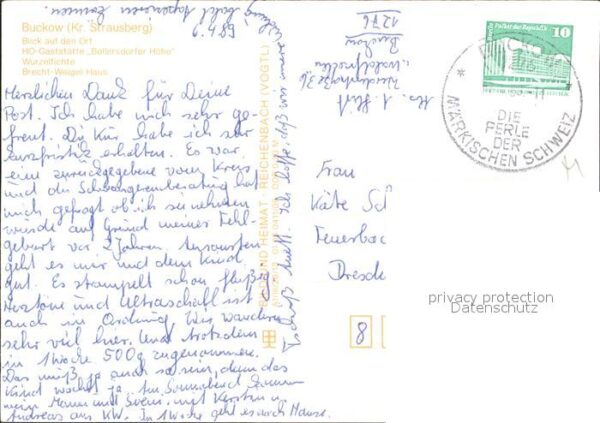 Buckow (Kr. Strausberg)
Blick auf den Ort
HO-Gaststätte „Bollersdorfer Höhe"
Wurzelfichte
Brecht-Weigel Haus
6.4.89
Herzlichen Dank für Deine
Post. Ich habe mich sehr ge-
freut. Die Kur habe ich sehr
kurzfristig erhalten. Es war
eine zurückgegebene vom Kreis
und die Schwangerenberatung hat
mich gefragt ob ich sie nehmen
würde auf Grund meiner Fehl-
geburt vor 2 Jahren. Ansonsten
geht es mir und dem Kind
gut. Es strampelt schon fleißig
Herztöne und Ultraschall ist
auch in Ordnung. Wir wandern
sehr viel hier. Und trotzdem
in 1 Woche 500g zugenommen.
Das muß ja auch so sein, denn das
Kind wächst ja. Am Sonnabend kommen
mein Mann und Sven mit Kerstin u.
Andreas aus KW. In 1 Woche geht es nach Hause.
Ich hoffe, daß wir
BILD UND HEIMAT REICHENBACH (VOGTL)
1276
Buckow
Frau
Käte
Feuerbac
Dresde
8
10
DIE
PERLE
DER
MÄRKISCHEN SCHWEIZ
privacy protection
Datenschutz